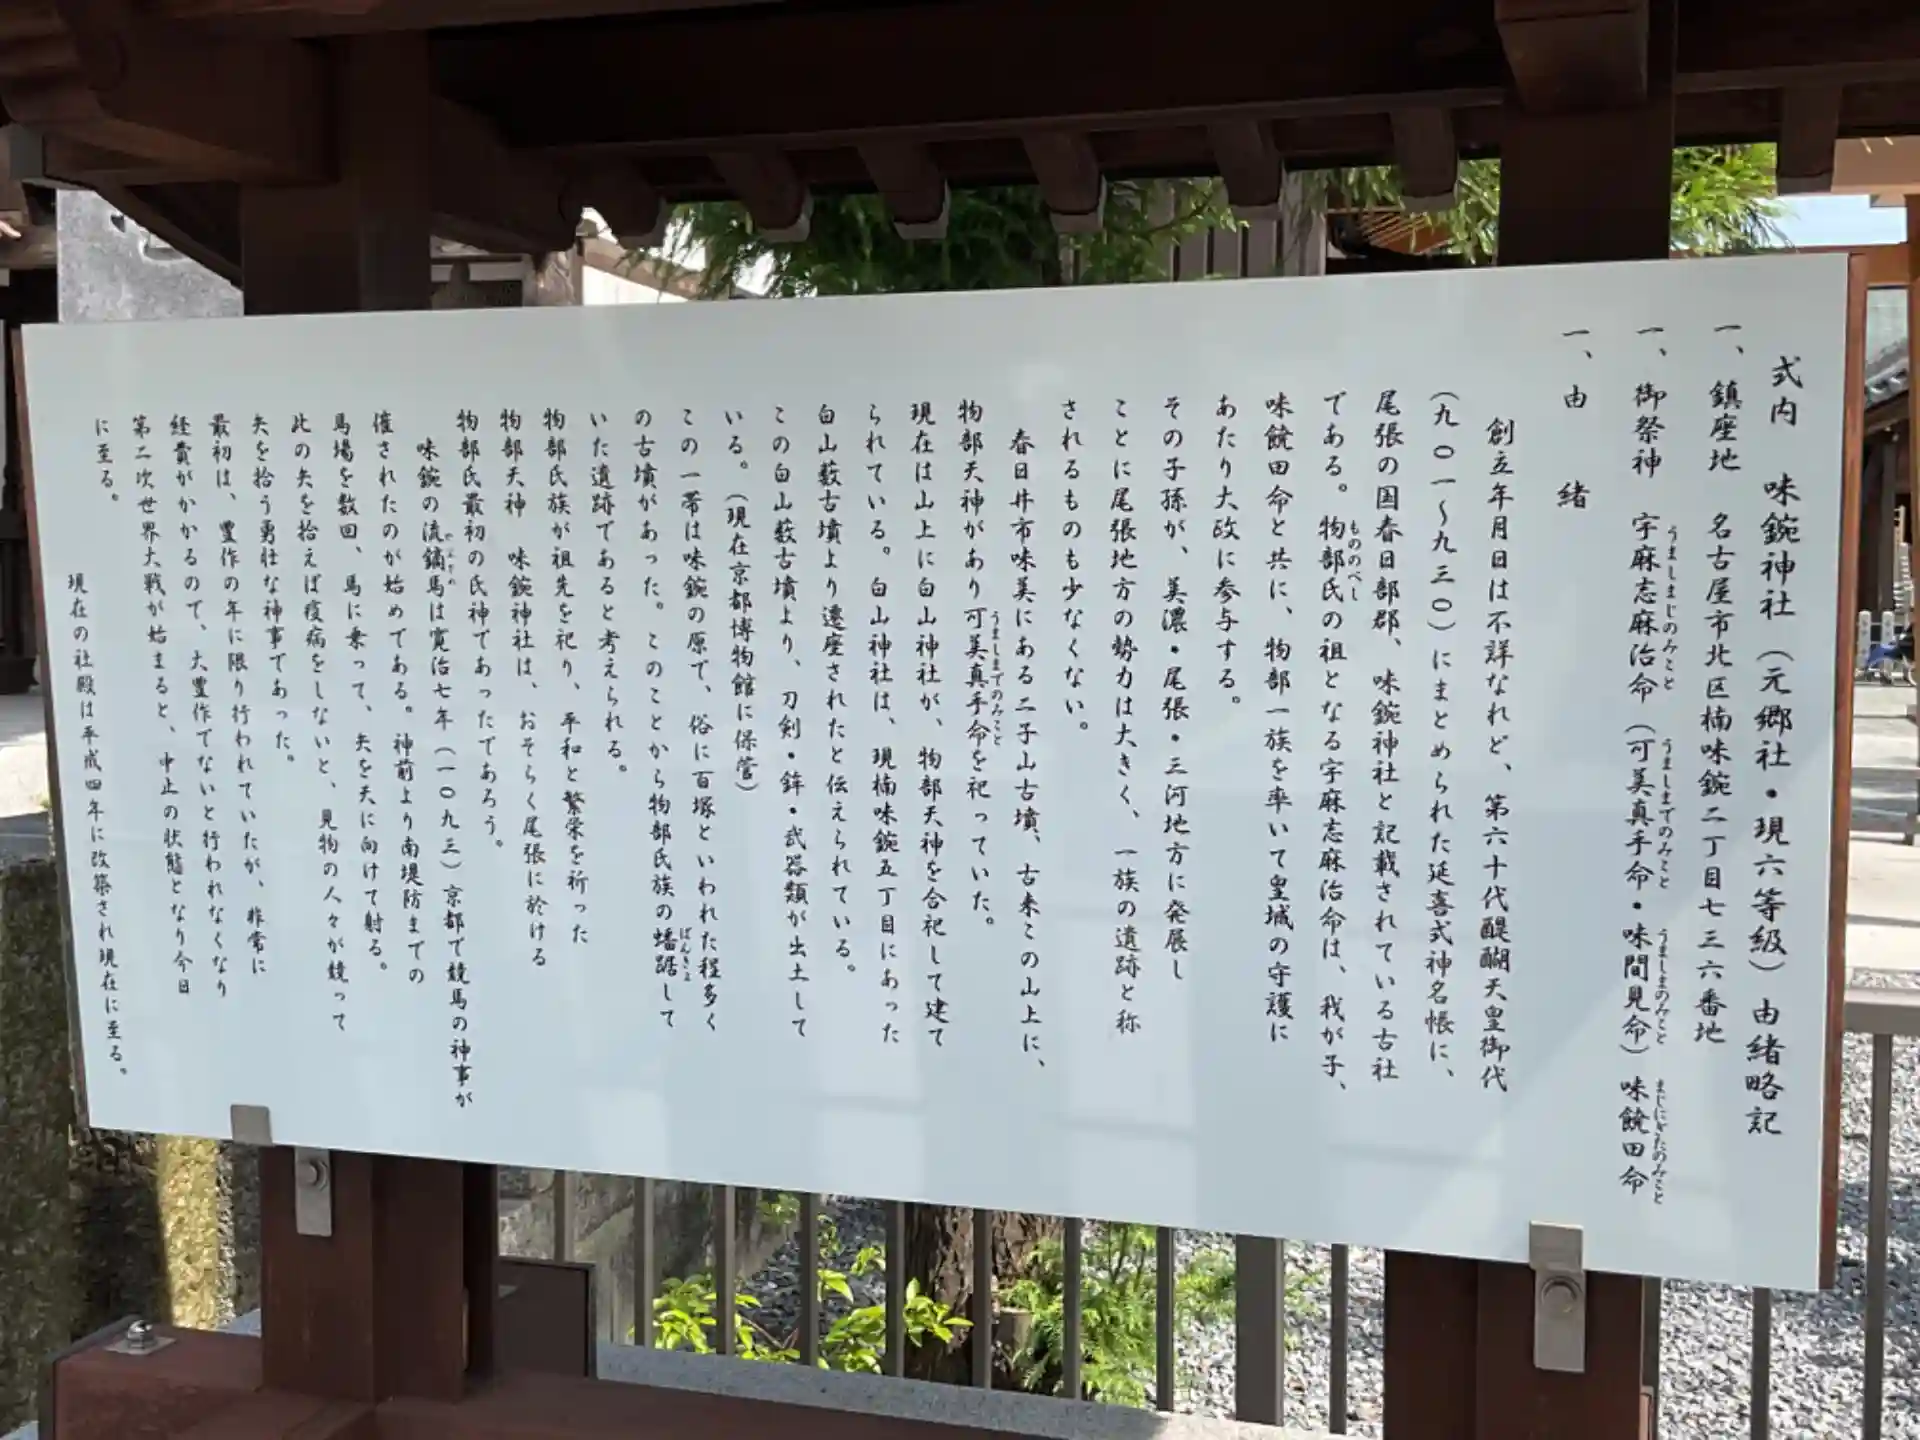 式内　味鋺神社（元郷社・現六等級）由緒略記
一、鎮座地　名古屋市北区楠味鋺二丁目七三六番地
一、御祭神　宇麻志麻治命（可美真手命・味間見命）味饒田命
うましまじのみこと　うましまでのみこと　うましまのみこと　まじにぎたのみこと
一、由　緒
創立年月日は不詳なれど、第六十代醍醐天皇御代
（九〇一～九三〇）にまとめられた延喜式神名帳に、
尾張の国春日部郡、味鋺神社と記載されている古社
である。物部氏の祖となる宇麻志麻治命は、我が子、
もののべし
味饒田命と共に、物部一族を率いて皇城の守護に
あたり大政に参与する。
その子孫が、美濃・尾張・三河地方に発展し
ことに尾張地方の勢力は大きく、一族の遺跡と称
されるものも少なくない。
春日井市味美にある二子山古墳、古来この山上に、
物部天神があり可美真手命を祀っていた。
うましまでのみこと
現在は山上に白山神社が、物部天神を合祀して建て
られている。白山神社は、現楠味鋺五丁目にあった
白山薮古墳より遷座されたと伝えられている。
この白山薮古墳より、刀剣・鉾・武器類が出土して
いる。（現在京都博物館に保管）
この一帯は味鋺の原で、俗に百塚といわれた程多く
の古墳があった。このことから物部氏族の蟠踞して
ばんきょ
いた遺跡であると考えられる。
物部氏族が祖先を祀り、平和と繁栄を祈った
物部天神　味鋺神社は、おそらく尾張に於ける
物部氏最初の氏神であったであろう。
味鋺の流鏑馬は寛治七年（一〇九三）京都で競馬の神事が
やぶさめ
催されたのが始めである。神前より南堤防までの
馬場を数回、馬に乗って、矢を天に向けて射る。
此の矢を拾えば疫病をしないと、見物の人々が競って
矢を拾う勇壮な神事であった。
最初は、豊作の年に限り行われていたが、非常に
経費がかかるので、大豊作でないと行われなくなり
第二次世界大戦が始まると、中止の状態となり今日
に至る。
現在の社殿は平成四年に改築され現在に至る。